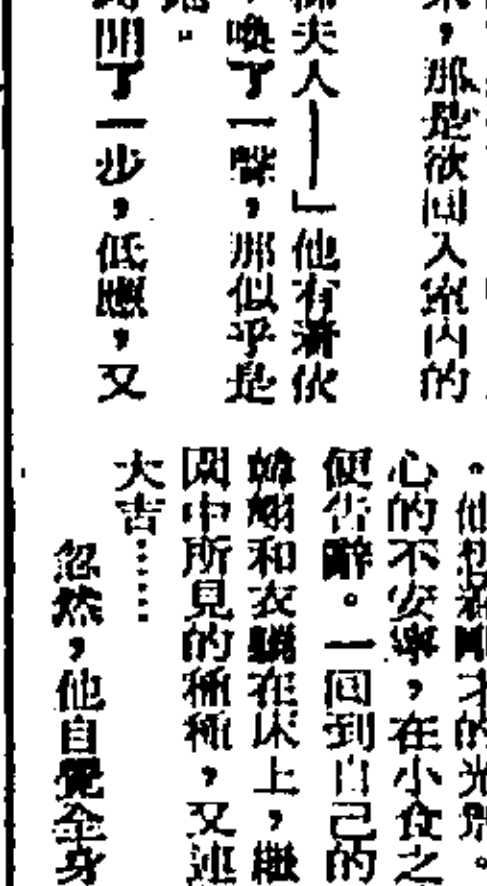 ，那是欲回入室內的
夫人——」他有漸伙
，喚了一聲，那似乎是
地。
開了一步，低應，又
。他想着剛才的光景。
心的不安寧，在小食之
便告辭。一回到自己的
和衣躺在床上，繼
閣中所見的種種，又連
大吉……
忽然，他自覺全身